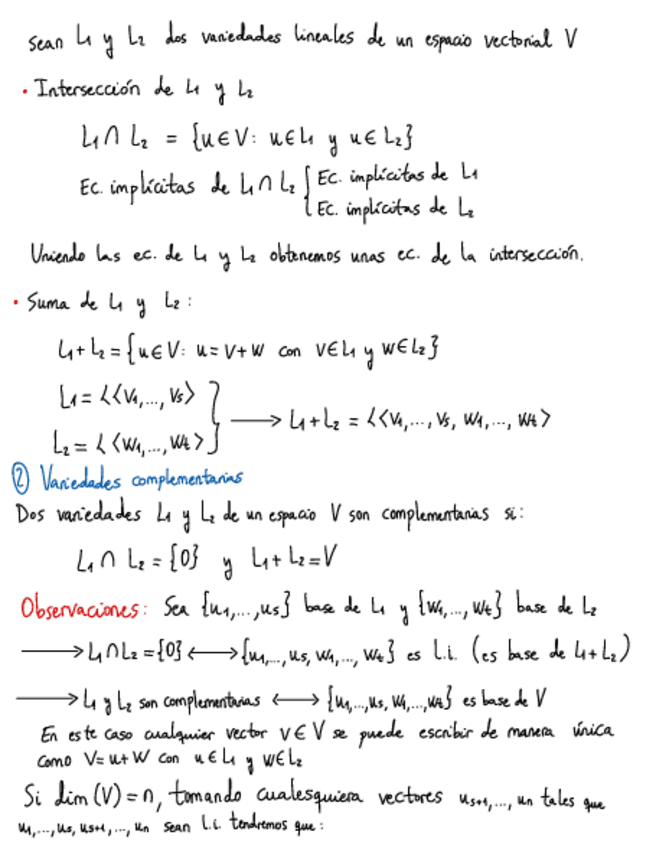 Sean L₁ y L₂ dos variedades lineales de un espacio vectorial V
· Intersección de L₁ y L₂
L₁ ∩ L₂ = {u ∈ V: u ∈ L₁ y u ∈ L₂}
Ec. implícitas de L₁ ∩ L₂ { Ec. implícitas de L₁
Ec. implícitas de L₂
Uniendo las ec. de L₁ y L₂ obtenemos unas ec. de la intersección.
· Suma de L₁ y L₂:
L₁+L₂ = {u ∈ V: u = v+w con v ∈ L₁ y w ∈ L₂}
L₁ = L<v₁,..., vs>
L₂ = L<w₁,..., wt> } ⟶ L₁+L₂ = L<v₁,..., vs, w₁,..., wt>
② Variedades complementarias
Dos variedades L₁ y L₂ de un espacio V son complementarias si:
L₁ ∩ L₂ = {0} y L₁+L₂ = V
Observaciones: Sea {u₁,..., us} base de L₁ y {w₁,..., wt} base de L₂
⟶ L₁∩L₂ = {0} ⟷ {u₁,..., us, w₁,..., wt} es l.i. (es base de L₁+L₂)
⟶ L₁ y L₂ son complementarias ⟷ {u₁,..., us, w₁,..., wt} es base de V
En este caso cualquier vector v ∈ V se puede escribir de manera única
como v = u+w con u ∈ L₁ y w ∈ L₂
Si dim(V) = n, tomando cualesquiera vectores us+1,..., un tales que
u₁,..., us, us+1,..., un sean l.i. tendremos que: